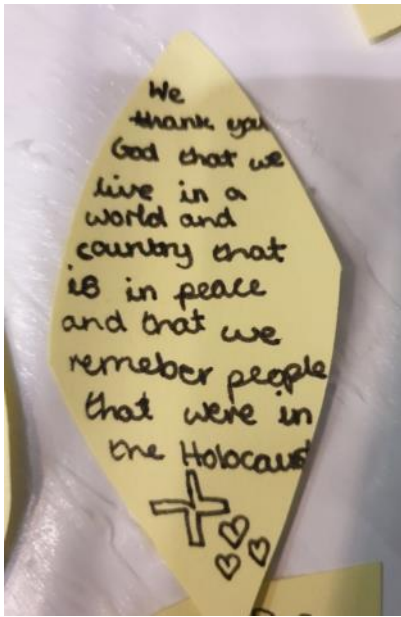 We
thank you
God that we
live in a
world and
country that
is in peace
and that we
remeber people
that were in
the Holocaust